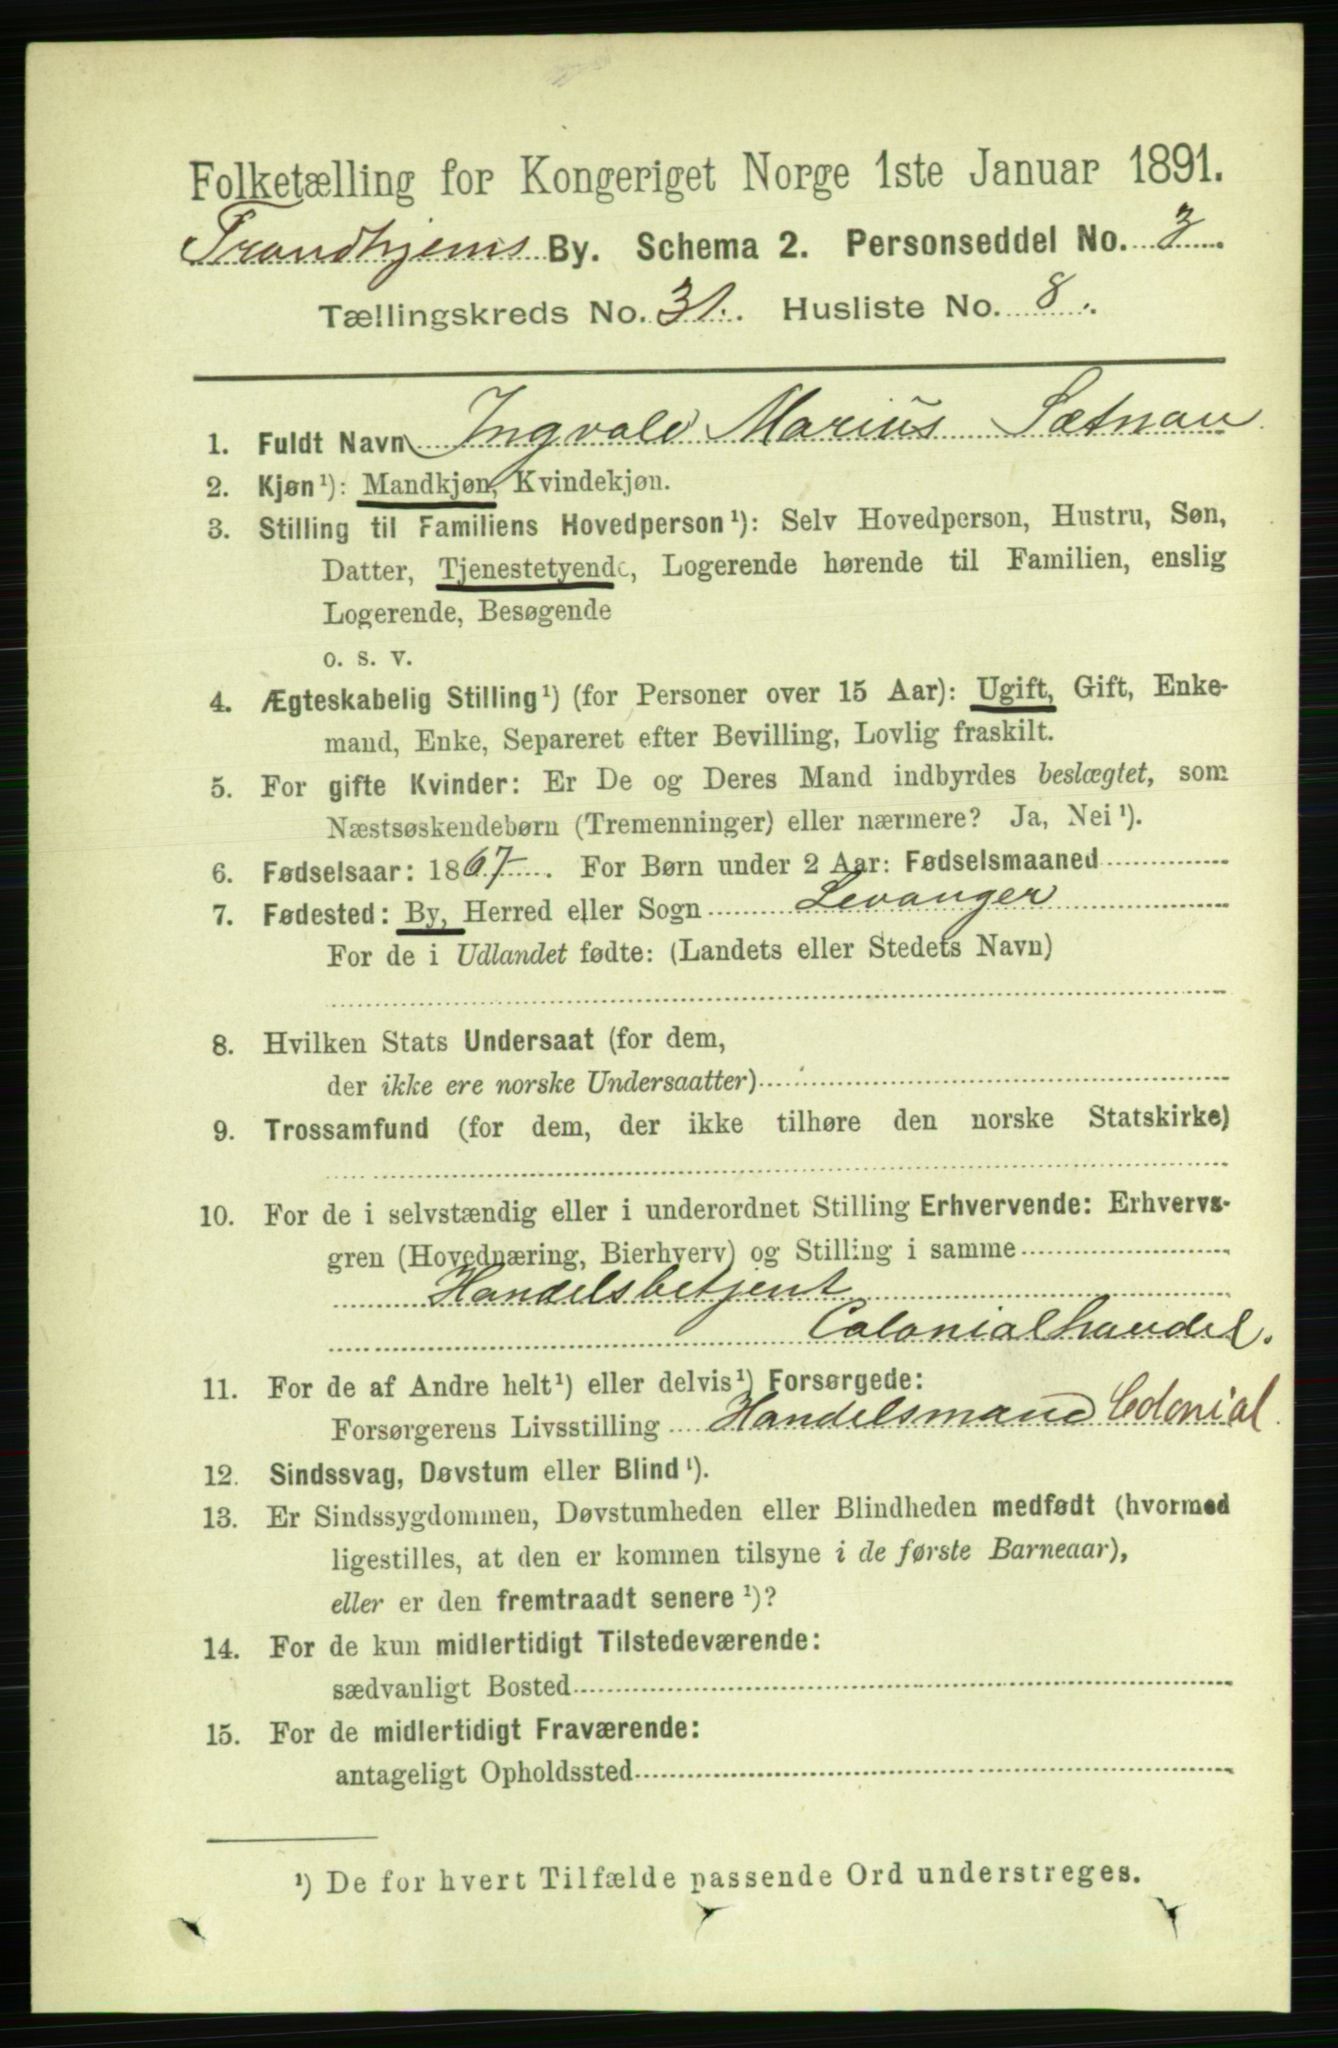 Folketælling for Kongeriget Norge 1ste Januar 1891.
Trondhjems By. Schema 2. Personseddel No. 3
Tællingskreds No. 31. Husliste No. 8.
1. Fuldt Navn Ingvald Marius Sætnan
2. Kjøn¹): Mandkjøn, Kvindekjøn.
3. Stilling til Familiens Hovedperson¹): Selv Hovedperson, Hustru, Søn,
Datter, Tjenestetyende, Logerende hørende til Familien, enslig
Logerende, Besøgende
o. s. v.
4. Ægteskabelig Stilling¹) (for Personer over 15 Aar): Ugift, Gift, Enke-
mand, Enke, Separeret efter Bevilling, Lovlig fraskilt.
5. For gifte Kvinder: Er De og Deres Mand indbyrdes beslægtet, som
Næstsøskendebørn (Tremenninger) eller nærmere? Ja, Nei¹).
6. Fødselsaar: 1867. For Børn under 2 Aar: Fødselsmaaned
7. Fødested: By, Herred eller Sogn Levanger
For de i Udlandet fødte: (Landets eller Stedets Navn)
8. Hvilken Stats Undersaat (for dem,
der ikke ere norske Undersaatter)
9. Trossamfund (for dem, der ikke tilhøre den norske Statskirke)
10. For de i selvstændig eller i underordnet Stilling Erhvervende: Erhvervs-
gren (Hovednæring, Bierhverv) og Stilling i samme
Handelsbetjent
Colonialhandel.
11. For de af Andre helt¹) eller delvis¹) Forsørgede:
Forsørgerens Livsstilling Handelsmand Colonial
12. Sindssvag, Døvstum eller Blind¹).
13. Er Sindssygdommen, Døvstumheden eller Blindheden medfødt (hvormed
ligestilles, at den er kommen tilsyne i de første Barneaar),
eller er den fremtraadt senere¹)?
14. For de kun midlertidigt Tilstedeværende:
sædvanligt Bosted
15. For de midlertidigt Fraværende:
antageligt Opholdssted
¹) De for hvert Tilfælde passende Ord understreges.